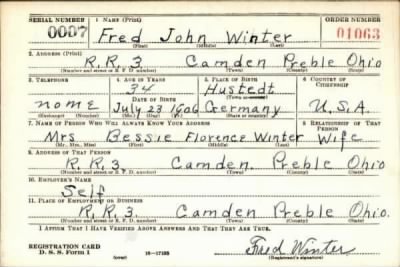 SERIAL NUMBER 1. NAME (Print) ORDER NUMBER
0007 Fred John Winter 01063
(First) (Middle) (Last)
2. ADDRESS (Print)
R.R.3. Camden Preble Ohio
(Number and street or R. F. D. number) (Town) (County) (State)
3. TELEPHONE 4. AGE IN YEARS 5. PLACE OF BIRTH 6. COUNTRY OF CITIZENSHIP
34 Hustedt
DATE OF BIRTH (Town or county)
none July 23 1906 Germany U.S.A.
(Exchange) (Number) (Mo.) (Day) (Yr.) (State or country)
7. NAME OF PERSON WHO WILL ALWAYS KNOW YOUR ADDRESS 8. RELATIONSHIP OF THAT PERSON
Mrs Bessie Florence Winter Wife
(Mr., Mrs., Miss) (First) (Middle) (Last)
9. ADDRESS OF THAT PERSON
R.R.3. Camden. Preble Ohio
(Number and street or R. F. D. number) (Town) (County) (State)
10. EMPLOYER'S NAME
Self
11. PLACE OF EMPLOYMENT OR BUSINESS
R.R.3. Camden Preble Ohio.
(Number and street or R. F. D. number) (Town) (County) (State)
I AFFIRM THAT I HAVE VERIFIED ABOVE ANSWERS AND THAT THEY ARE TRUE.
REGISTRATION CARD
D. S. S. Form 1 (over) Fred Winter
(Registrant's signature)